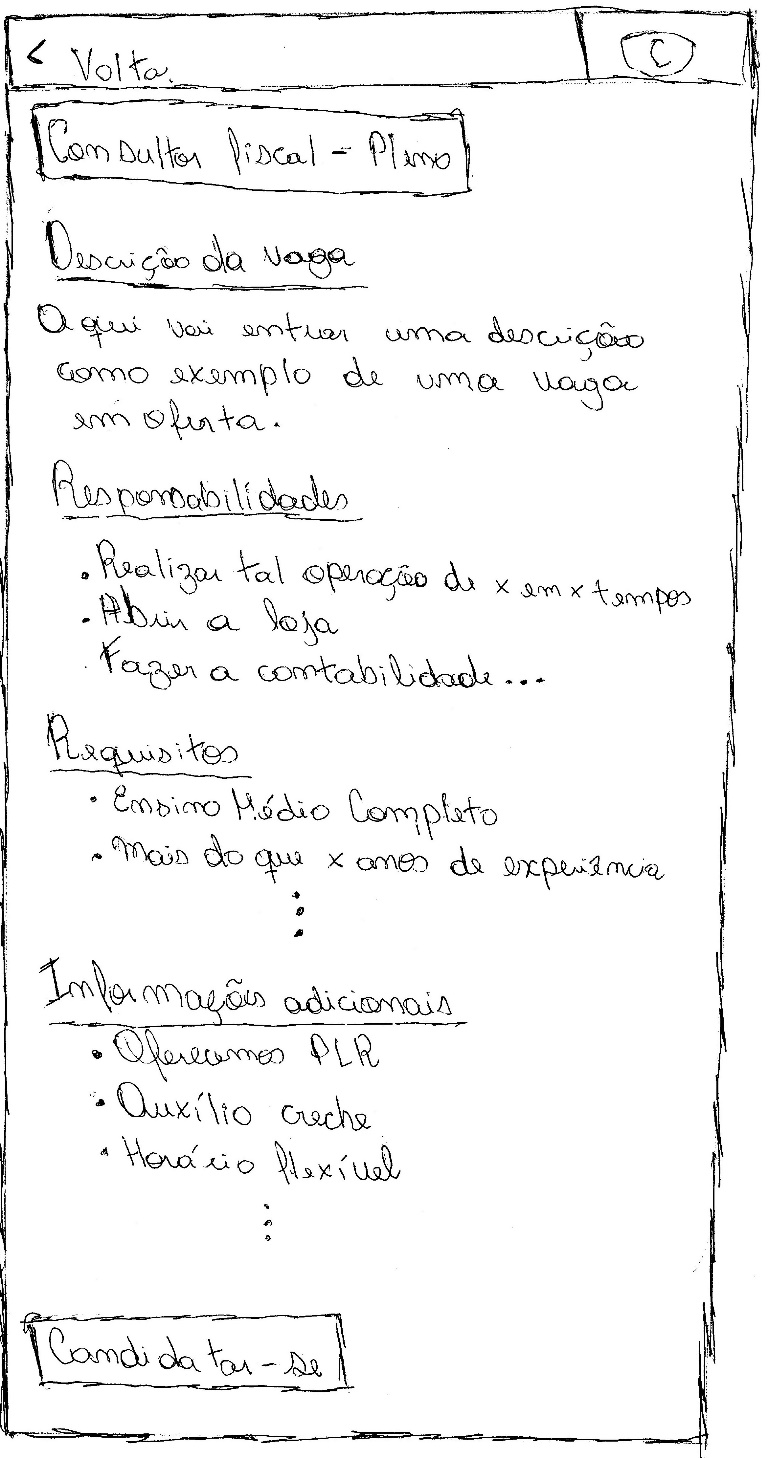 < Volta.
C
Consultor fiscal - Pleno
Descrição da vaga
Aqui vai entrar uma descrição
como exemplo de uma vaga
em oferta.
Responsabilidades
. Realizar tal operação de x em x tempos
. Abrir a loja
. Fazer a contabilidade...
Requisitos
• Ensino Médio Completo
• Mais do que x anos de experiência
Informações adicionais
• Oferecemos PLR
• Auxílio creche
• Horário flexível
Candidatar-se